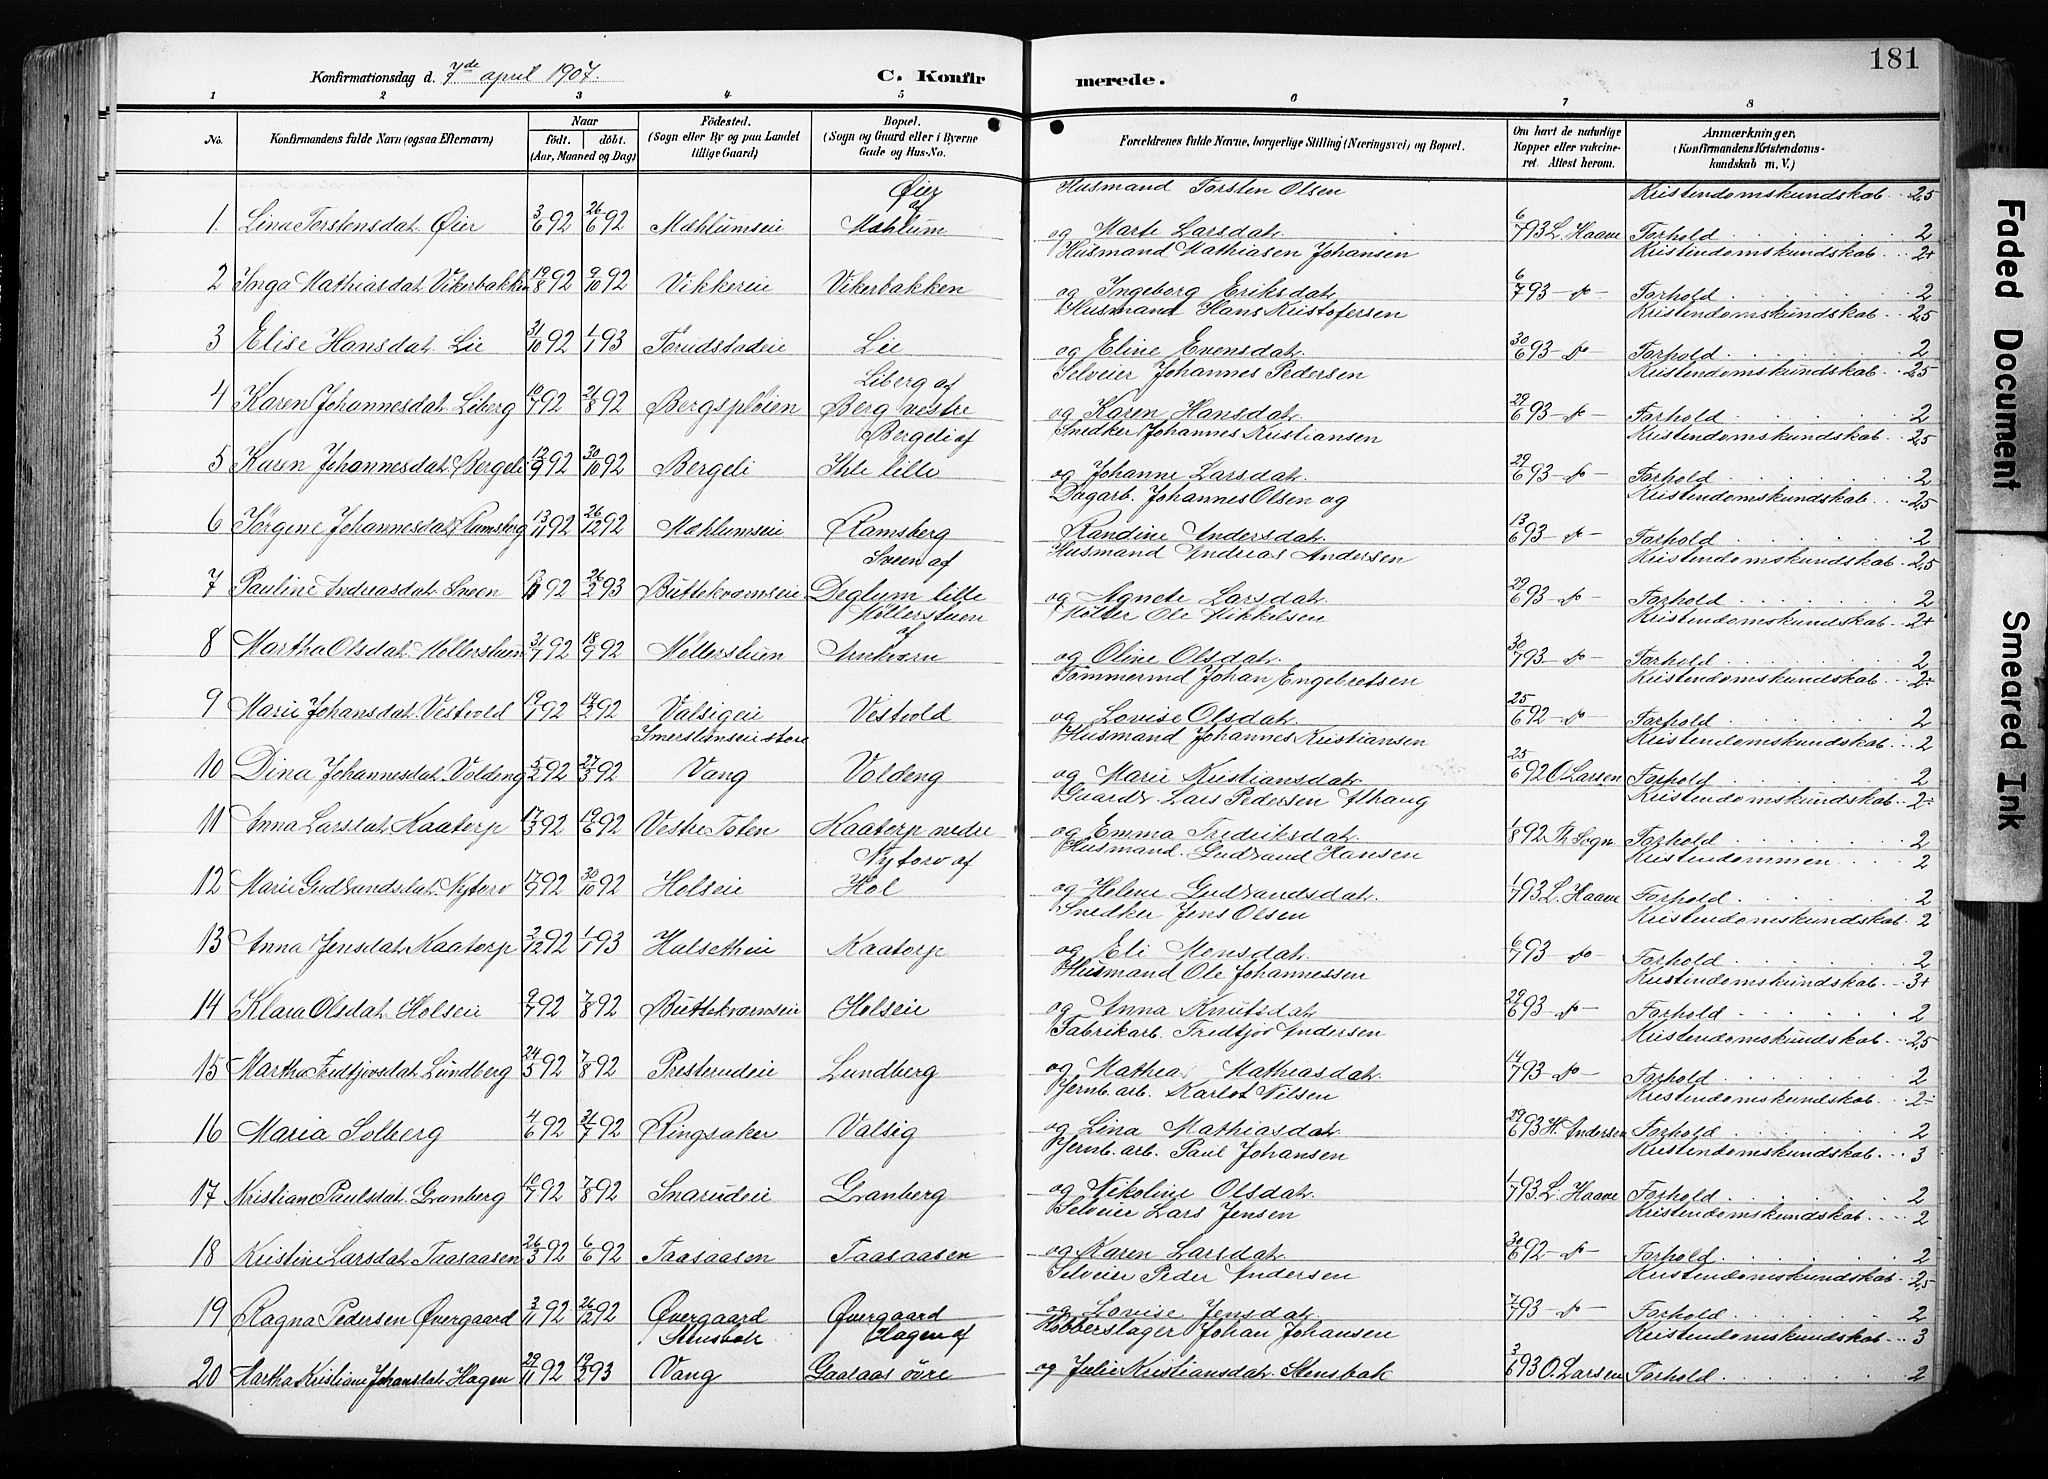 181
Konfirmationsdag d. 7de april 1907.
C. Konfirmerede.
1 2 3 4 5 6 7 8
No.
Konfirmandens fulde Navn (ogsaa Efternavn)
Naar
født. døbt.
(Aar, Maaned og Dag)
Fødested.
(Sogn eller By og paa Landet tillige Gaard)
Bopæl.
(Sogn og Gaard eller i Byerne Gade og Hus-No.
Forældrenes fulde Navne, borgerlige Stilling (Næringsvei) og Bopæl.
Om havt de naturlige Kopper eller vakcineret. Attest herom.
Anmærkninger.
(Konfirmandens Kristendomskundskab m. V.)
1. Lina Torstensdat. Øier 3/6 92 26/6 92 Mæhlumseie Øier af Mæhlum Husmand Torsten Olsen og Marte Larsdat. 6/7 93 L. Haave Kristendomskundskab 2,5 Forhold 2
2 Inga Mathiasdat. Vikerbakken 19/8 92 9/10 92 Vikkereie Vikerbakken Husmand Mathiasen Johansen og Ingeborg Eriksdat. 6/7 93 - do - Kristendomskundskab 2+ Forhold 2
3 Elise Hansdat. Lie 31/10 92 1/1 93 Torudstadeie Lie Husmand Hans Kristofersen og Eline Evensdat. 30/6 93 - do - Kristendomskundskab 2,5 Forhold 2
4 Karen Johannesdat. Liberg 10/7 92 21/8 92 Bergspløien Liberg af Berg vestre Selveier Johannes Pedersen og Karen Hansdat. 29/6 93 - do - Kristendomskundskab 2,5 Forhold 2
5 Karen Johannesdat. Bergeli 12/9 92 30/10 92 Bergeli Bergeli af Ihle lille Snedker Johannes Kristiansen og Johanne Larsdat. 29/6 93 - do - Kristendomskundskab 2,5 Forhold 2
6 Jørgine Johannesdat. Ramsberg 13/11 92 26/12 92 Mæhlumseie Ramsberg Dagarb. Johannes Olsen og Randine Andersdat. 13/6 93 - do - Kristendomskundskab 2,5 Forhold 2
7 Pauline Andreasdat. Sveen 92 26/2 93 Buttekværnseie Sveen af Deglum lille Husmand Andreas Andersen og Agnete Larsdat. 29/6 93 - do - Kristendomskundskab 2,5 Forhold 2
8 Martha Olsdat. Møllerstuen 31/7 92 18/9 92 Møllerstuen Møllerstuen af Arnkværn Møller Ole Mikkelsen og Oline Olsdat. 30/7 93 - do - Kristendomskundskab 2+ Forhold 2
9 Marie Johansdat. Vestvold 92 14/2 92 Valsigeie Vestvold Tømmermd Johan Engebretsen og Lovise Olsdat. 25/6 92 - do - Kristendomskundskab 2÷ Forhold 2
10 Dina Johannesdat. Voldeng 5/2 92 27/3 92 Imerslundseie store Vang Voldeng Husmand Johannes Kristiansen og Marie Kristiansdat. 25/6 92 O. Larsen Kristendomskundskab 2 Forhold 2
11 Anna Larsdat. Kaatorp 17/3 92 19/6 92 Vestre Toten Kaatorp nedre Gaardb. Lars Pedersen Alhaug og Emma Fredriksdat. 1/8 92 Th. Sogn Kristendomskundskab 2÷ Forhold 2
12 Marie Gudbrandsdat. Nytorv 17/9 92 30/10 92 Holseie Nytorv af Hol Husmand Gudbrand Hansen og Helene Gudbrandsdat. 1/7 93 L. Haave Kristendommen 2 Forhold 2
13 Anna Jensdat. Kaatorp 2/12 92 1/1 93 Hulsetheie Kaatorp Snedker Jens Olsen og Eli Monsdat. 6/7 93 - do - Kristendomskundskab 2 Forhold 2
14 Klara Olsdat. Holseie 9/7 92 7/8 92 Buttekværnseie Holseie Husmand Ole Johannessen og Anna Knutsdat. 29/6 93 - do - Kristendomskundskab 3+ Forhold 2
15 Martha Fredtjovsdat. Lundberg 24/5 92 7/8 92 Presterudeie Lundberg Fabrikarb. Fredtjov Andersen og Mathea Mathiasdat. 14/7 93 - do - Kristendomskundskab 2,5 Forhold 2
16 Maria Solberg 4/6 92 31/7 92 Ringsaker Valsig Jernb. arb. Karlot Nilsen og Lina Mathiasdat. 29/6 93 H. Andersen Kristendomskundskab 2÷ Forhold 2
17 Kristiane Paulsdat. Granberg 10/7 92 7/8 92 Snarudeie Granberg Jernb. arb. Paul Johansen og Nikoline Olsdat. 1/7 93 L. Haave Kristendomskundskab 3 Forhold 2
18 Kristine Larsdat. Taasaasen 26/3 92 6/6 92 Taasaasen Taasaasen Selveier Lars Jensen og Karen Larsdat. 30/6 92 - do - Kristendomskundskab 2 Forhold 2
19 Ragna Pedersen Øvergaard 3/11 92 26/12 92 Øvergaard Øvergaard Selveier Peder Andersen og Lovise Jensdat. 7/7 93 - do - Kristendomskundskab 2,5 Forhold 2
20 Martha Kristiane Johansdat. Hagen 29/11 92 19/2 93 Stensbak Vang Hagen af Gaalaas övre Kobberslager Johan Johansen og Julie Kristiansdat. Stensbak 3/6 93 O. Larsen Kristendomskundskab 3 Forhold 2
Faded Document
Smeared Ink